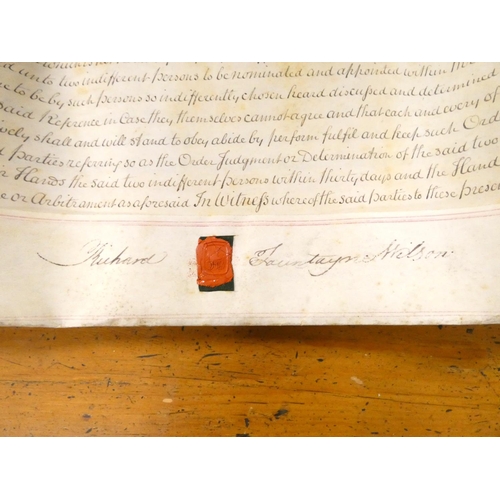 d unto two indifferent persons to be nominated and appointed within th
e to be by such persons so indifferently chosen heard discussed and determined
said Reference in Case they themselves cannot agree and that each and every of
ively shall and will stand to obey abide by perform fulfil and keep such Ord
d parties referring so as the Order Judgment or Determination of the said two
r Hands the said two indifferent persons within thirty days and the Hand
e or Arbitrament as aforesaid In Witness whereof the said parties to these prese
Richard Fountayne Wilson